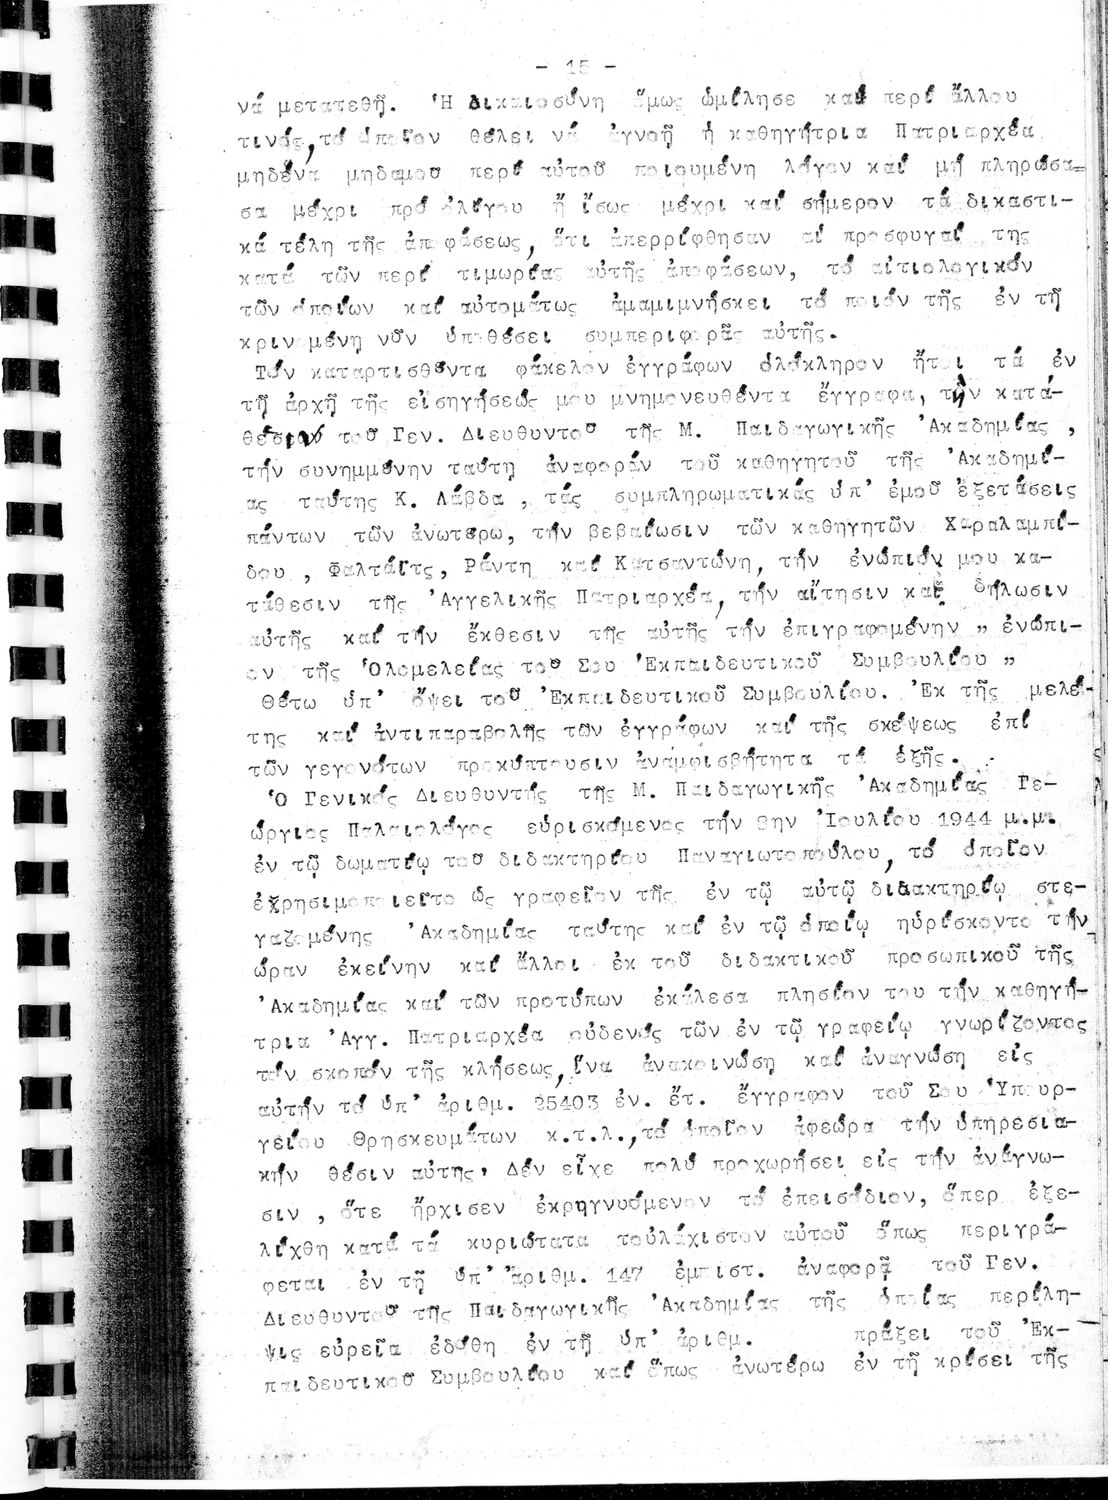 - 15 -
νά μετατεθῇ. Ἡ Δικαιοσύνη ὅμως ὡμίλησε καί περί ἄλλου
τινός, τό ὁποῖον θέλει νά ἀγνοῇ ἡ καθηγήτρια Πατριαρχέα
μηδένα μηδαμοῦ περί αὐτοῦ ποιουμένη λόγον καί μή πληρώσα=
σα μέχρι πρό ὀλίγου ἤ ἴσως μέχρι καί σήμερον τά δικαστι-
κά τέλη τῆς ἀποφάσεως, ὅτι ἀπερρίφθησαν αἱ προσφυγαί της
κατά τῶν περί τιμωρίας αὐτῆς ἀποφάσεων, τό αἰτιολογικόν
τῶν ὁποίων καί αὐτομάτως ἀμαμιμνήσκει τό ποιόν τῆς ἐν τῇ
κρινομένῃ νῦν ὑποθέσει συμπεριφορᾶς αὐτῆς.
Τόν καταρτισθέντα φάκελον ἐγγράφων ὁλόκληρον ἤτοι τά ἐν
τῇ ἀρχῇ τῆς εἰσηγήσεώς μου μνημονευθέντα ἔγγραφα, τήν κατά-
θεσιν τοῦ Γεν. Διευθυντοῦ τῆς Μ. Παιδαγωγικῆς Ἀκαδημίας ,
τήν συνημμένην ταύτῃ ἀναφοράν τοῦ καθηγητοῦ τῆς Ἀκαδημί-
ας ταύτης Κ. Λάβδα , τάς συμπληρωματικάς ὑπ' ἐμοῦ ἐξετάσεις
πάντων τῶν ἀνωτέρω, τήν βεβαίωσιν τῶν καθηγητῶν Χαραλαμπί-
δου , Φαλτάϊτς, Ράντη καί Κατσαντώνη, τήν ἐνώπιόν μου κα-
τάθεσιν τῆς Ἀγγελικῆς Πατριαρχέα, τήν αἴτησιν καί δήλωσιν
αὐτῆς καί τήν ἔκθεσιν τῆς αὐτῆς τήν ἐπιγραφομένην " ἐνώπι-
ον τῆς Ὁλομελείας τοῦ Σου Ἐκπαιδευτικοῦ Συμβουλίου "
Θέτω ὑπ' ὄψει τοῦ Ἐκπαιδευτικοῦ Συμβουλίου. Ἐκ τῆς μελέ-
της καί ἀντιπαραβολῆς τῶν ἐγγράφων καί τῆς σκέψεως ἐπί
τῶν γεγονότων προκύπτουσιν ἀναμφισβήτητα τά ἑξῆς.
Ὁ Γενικός Διευθυντής τῆς Μ. Παιδαγωγικῆς Ἀκαδημίας Γε-
ώργιος Παλαιολόγος εὑρισκόμενος τήν 8ην Ἰουλίου 1944 μ.μ.
ἐν τῷ δωματίῳ τοῦ διδακτηρίου Παναγιωτοπούλου, τό ὁποῖον
ἐχρησιμοποιεῖτο ὡς γραφεῖον τῆς ἐν τῷ αὐτῷ διδακτηρίῳ στε-
γαζομένης Ἀκαδημίας ταύτης καί ἐν τῷ ὁποίῳ ηὑρίσκοντο τήν
ὥραν ἐκείνην καί ἄλλοι ἐκ τοῦ διδακτικοῦ προσωπικοῦ τῆς
Ἀκαδημίας καί τῶν προτύπων ἐκάλεσα πλησίον του τήν καθηγή-
τρια Ἀγγ. Πατριαρχέα οὐδενός τῶν ἐν τῷ γραφείῳ γνωρίζοντος
τόν σκοπόν τῆς κλήσεως, ἵνα ἀνακοινώσῃ καί ἀναγνώσῃ εἰς
αὐτήν τό ὑπ' ἀριθμ. 25403 ἐν. ἔτ. ἔγγραφον τοῦ Σου Ὑπουρ-
γείου Θρησκευμάτων κ.τ.λ., τό ὁποῖον ἀφεώρα τήν ὑπηρεσια-
κήν θέσιν αὐτης. Δέν εἶχε πολύ προχωρήσει εἰς τήν ἀνάγνω-
σιν , ὅτε ἤρχισεν ἐκρηγνυόμενον τό ἐπεισόδιον, ὅπερ ἐξε-
λίχθη κατά τά κυριώτατα τοὐλάχιστον αὐτοῦ ὅπως περιγρά-
φεται ἐν τῇ ὑπ' ἀριθμ. 147 ἐμπιστ. ἀναφορᾷ τοῦ Γεν.
Διευθυντοῦ τῆς Παιδαγωγικῆς Ἀκαδημίας τῆς ὁποίας περίλη-
ψις εὐρεῖα ἐδόθη ἐν τῇ ὑπ' ἀριθμ. πράξει τοῦ Ἐκ-
παιδευτικοῦ Συμβουλίου καί ὅπως ἀνωτέρω ἐν τῇ κρίσει τῆς